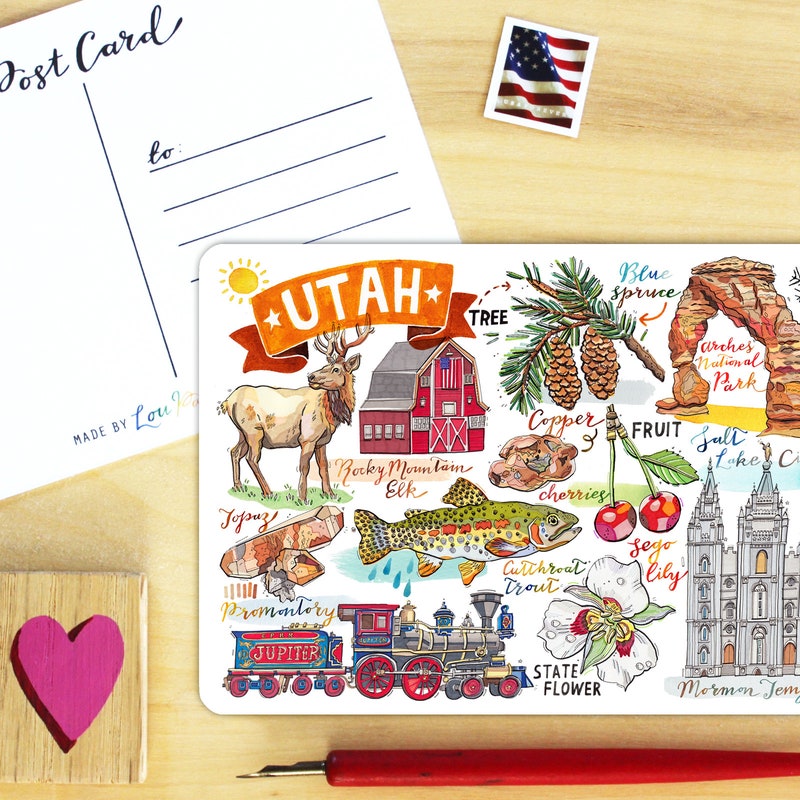 Post Card
to:
MADE BY Lou
UTAH
TREE
Blue
spruce
Arches
National
Park
Rocky Mountain
Elk
Copper
FRUIT
cherries
Salt
Lake
Topaz
Cutthroat
Trout
Sego
lily
Promontory
JUPITER
JUPITER
STATE
FLOWER
Mormon